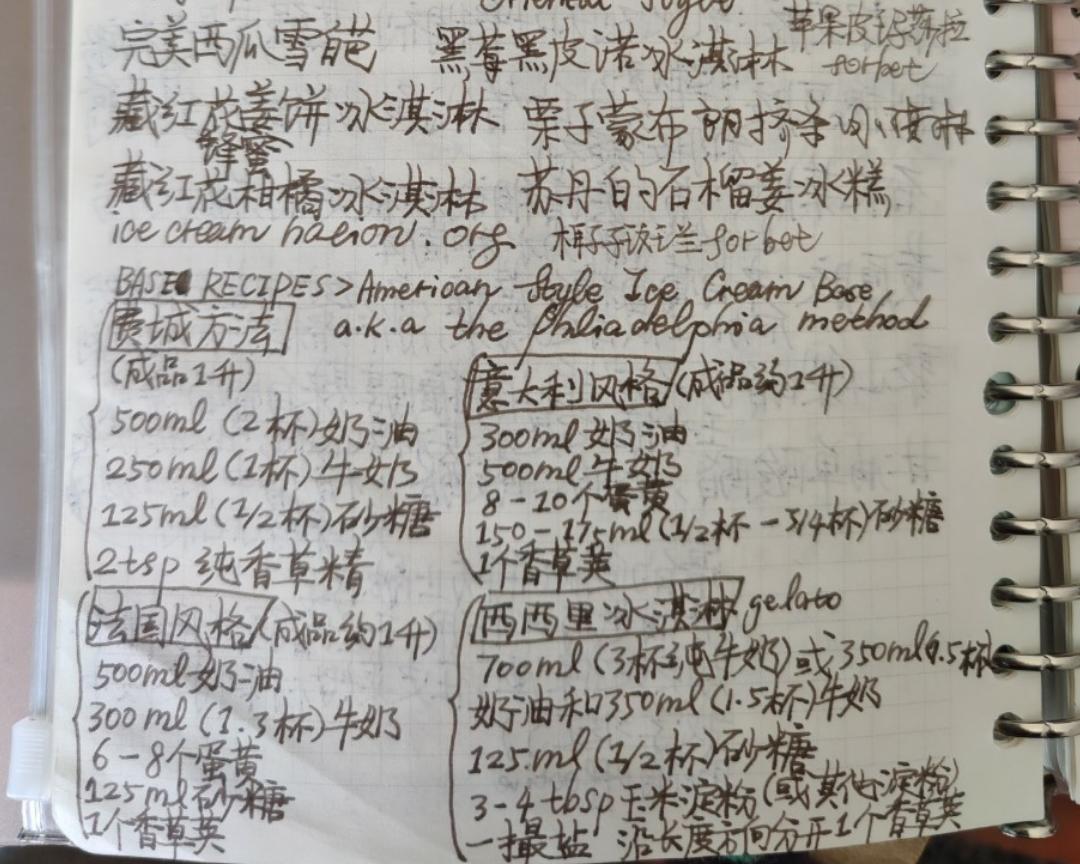 Oriental Style.
完美西瓜雪葩 黑莓黑皮诺冰淇淋 苹果皮
sorbet
藏红花姜饼冰淇淋 栗子蒙布朗挤条冰淇淋
蜂蜜
藏红花柑橘冰淇淋 苏丹的石榴姜冰糕
ice cream nation.org 椰子波兰sorbet
BASE RECIPES > American Style Ice Cream Base
费城方法 a.k.a the Philiadelphia method
(成品1升)
500ml (2杯)奶油
250ml (1杯)牛奶
125ml (1/2杯)砂糖
2tsp 纯香草精
意大利风格 (成品约1升)
300ml 奶油
500ml 牛奶
8-10个蛋黄
150-175ml (1/2杯-3/4杯)砂糖
1个香草荚
法国风格 (成品约1升)
500ml 奶油
300ml (1.3杯)牛奶
6-8个蛋黄
125ml 砂糖
1个香草荚
西西里冰淇淋 gelato
700ml (3杯纯牛奶)或350ml(1.5杯)
奶油和350ml (1.5杯)牛奶
125ml (1/2杯)砂糖
3-4 tbsp 玉米淀粉(或其他淀粉)
一撮盐 沿长度方向分开1个香草荚